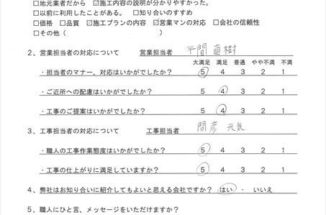 ☑地元業者だから ☑施工内容の説明が分かりやすかった。
□以前に利用したことがある。 □知り合いのすすめ
□価格 □品質 ☑施工プランの内容 ☑営業マンの対応 □会社の信頼性
□その他（ ）
2、営業担当者の対応について 営業担当者 平間直樹
大満足 満足 普通 やや不満 不満
・担当者のマナー、対応はいかがでしたか？ 5 4 3 2 1
・ご近所への配慮はいかがでしたか？ 5 4 3 2 1
・工事のご提案はいかがでしたか？ 5 4 3 2 1
3、工事担当者の対応について 工事担当者
・職人の工事作業態度はいかがでしたか？ 5 4 3 2 1
・工事の仕上がりに満足していますか？ 5 4 3 2 1
4、弊社はお知り合いに紹介してもよいと思える会社ですか？ はい ・ いいえ
5、職人にひと言、メッセージをいただけますか？